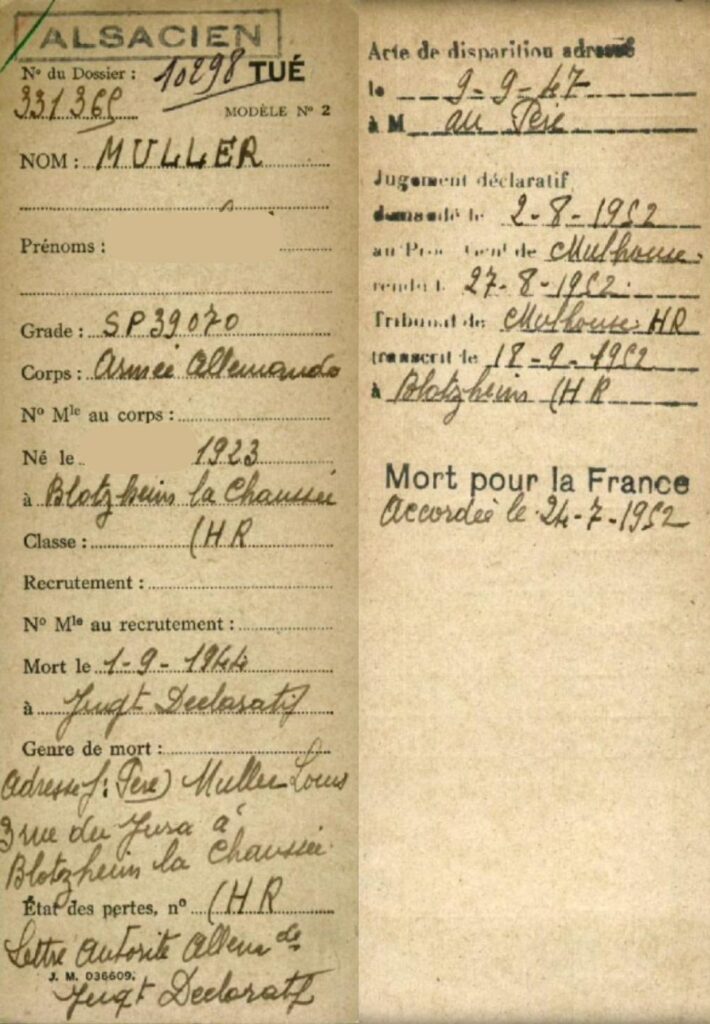 ALSACIEN
N° du Dossier : 10298 TUÉ
331369
MODÈLE N° 2
NOM : MULLER
Prénoms :
Grade : SP39070
Corps : Armée Allemande
N° Mle au corps :
Né le 1923
à Blotzheim la Chaussée
Classe : (HR
Recrutement :
N° Mle au recrutement :
Mort le 1-9-1944
à Jugt Declaratif
Genre de mort :
Adresse f: Père) Muller Louis
3 rue du Jura à
Blotzheim la Chaussée
État des pertes, n° (HR
Lettre Autorité Allem de
J. M. 036609.
Jugt Declaratif
Acte de disparition adressé
le 9-9-47
à M au Père
Jugement déclaratif
demandé le 2-8-1952
au Proc Gent de Mulhouse.
rendu l 27-8-1952.
Tribunal de Mulhouse HR
transcrit le 18-9-1952
à Blotzheim (HR
Mort pour la France
Accordée le 24-7-1952